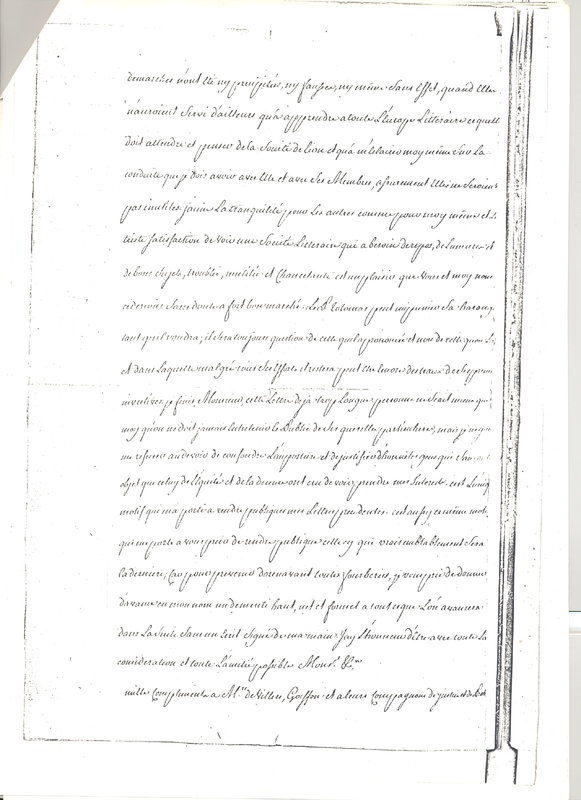 demarches n'ont été ny precipitées, ny fausses, ny même sans effet, quand elles
n'auroient servi d'ailleurs qu'a apprendre a toute l'Europe Litteraire ce qu'elle
doit attendre et penser de la Societé de Lion et qu'a m'eclairer moy même sur la
conduite que je dois avoir avec elle et avec ses Membres, assurement elles ne seroient
pas inutiles. jaime La tranquilité, pour les autres comme pour moy même et la
triste satisfaction de voir une Societé Litteraire qui a besoin de repos, de Lumieres et
de bons sujets, troublée, mutilée et Chancelante est un plaisir que vous et moy nous
cederions sans doute a fort bon marché. Le P. Tolomas peut imprimer sa harangue
tant qu'il voudra; il sera toujours question de celle qu'il a prononcée et non de celle qu'on
et dans Laquelle malgré tous ses efforts il restera peut etre encore des traces de ses premieres
invectives. je finis Monsieur, cette Lettre deja trop Longue, personne ne scait mieux que
moy qu'on ne doit jamais entretenir le Public de ses querelles particulieres, mais je n'ay pu
me refuser au devoir de confondre L'imposture et de justifier d'honnêtes gens qui
objet que celuy de L'équité et de la decence ont cru devoir prendre mes Interests. c'est L'unique
motif qui m'a porté a rendre publiques mes Lettres precedentes. c'est aussy ce même motif
qui me porte a vous prier de rendre publique celle cy qui vraisemblablement sera
la derniere; Car pour prevenir dorenavant toutes fourberies, je vous prie de donner
d'avance en mon nom un dementi haut, net et formel a tout ce que L'on avancera
dans La suite sans un ecrit signé de ma main. J'ay L'honneur d'être avec toute La
consideration et toute L'amitié possible Monsr. &c.
mille Complimens a Mrs. de Villers, Goiffon et a leurs Compagnons de